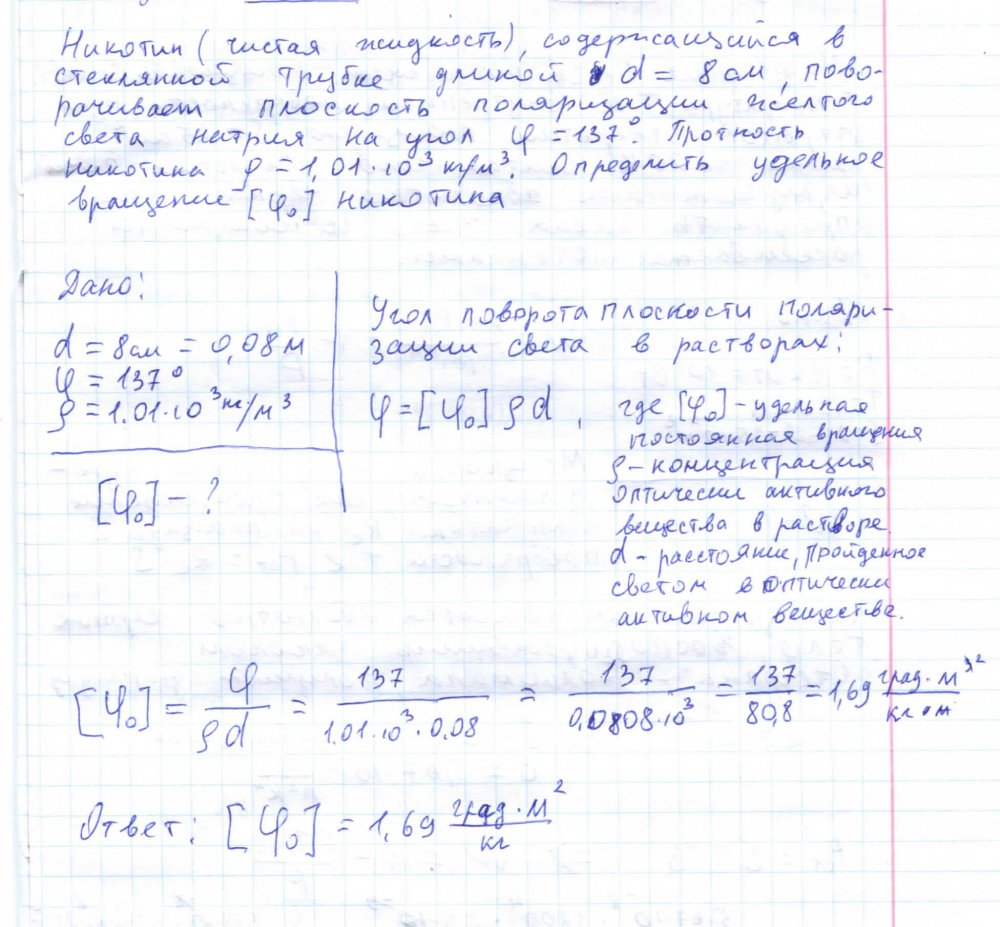 Никотин (чистая жидкость), содержащийся в
стеклянной трубке длиной d = 8 см, пово-
рачивает плоскость поляризации желтого
света натрия на угол φ = 137°. Плотность
никотина ρ = 1,01·10³ кг/м³. Определить удельное
вращение [φ₀] никотина
Дано:
d = 8 см = 0,08 м
φ = 137°
ρ = 1.01·10³ кг/м³
[φ₀] – ?
Угол поворота плоскости поляри-
зации света в растворах:
φ = [φ₀] ρ d , где [φ₀] – удельная
постоянная вращения
ρ – концентрация
оптически активного
вещества в растворе.
d – расстояние, пройденное
светом в оптически
активном веществе.
[φ₀] = φ/(ρ d) = 137/(1.01·10³·0.08) = 137/(0,0808·10³) = 137/80,8 = 1,69 град·м²/кг
Ответ: [φ₀] = 1,69 град·м²/кг